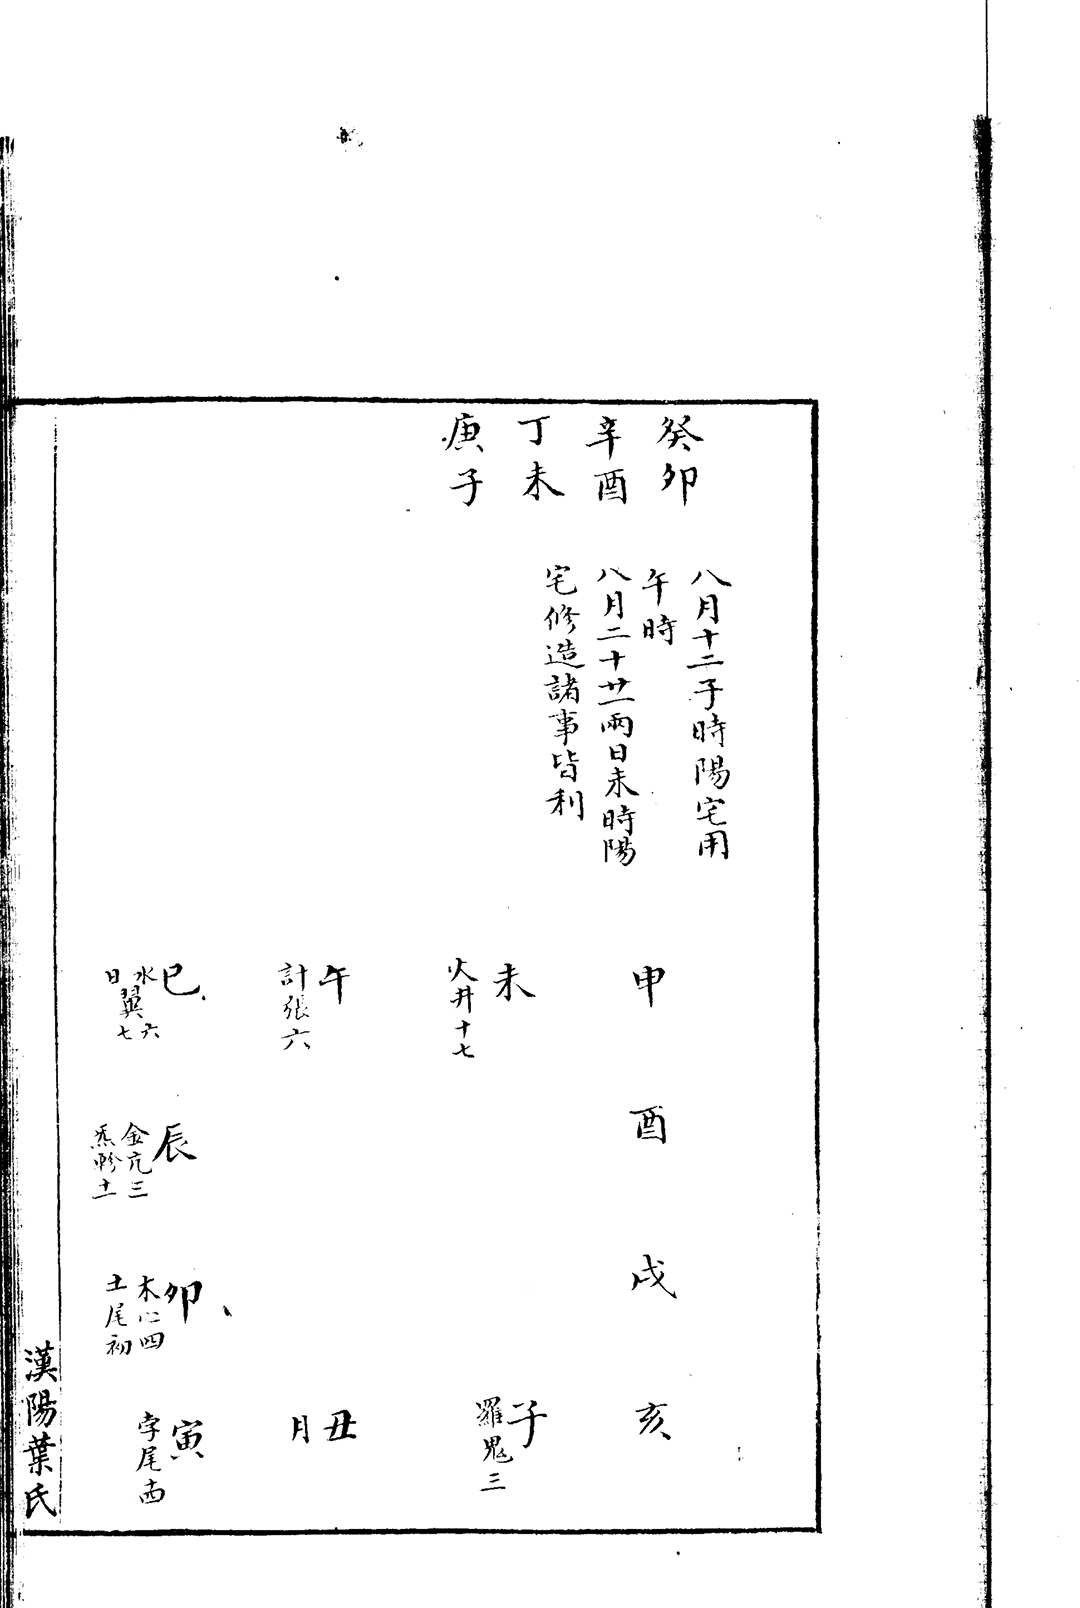 癸卯
辛酉
丁未
庚子
八月十二子時陽宅用
午時
八月二十廿一兩日未時陽
宅修造諸事皆利
申
酉
戌
亥
未
火井十七
子
羅鬼三
午
計張六
丑
月
巳
水翼六
日翼七
辰
金亢三
炁軫十一
卯
木心四
土尾初
寅
孛尾十四
漢陽葉氏